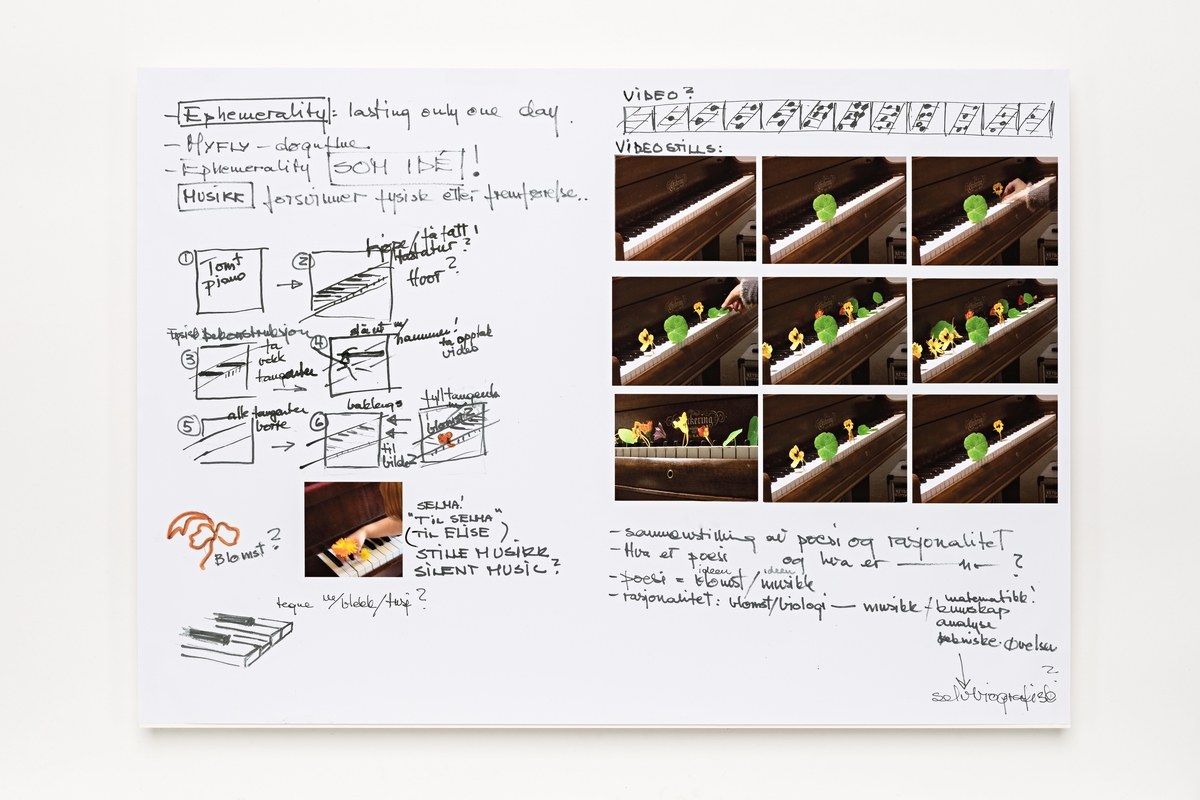 - Ephemerality: lasting only one day.
- MYFLY - døgnflue
- Ephemerality SOM IDÉ!
MUSIKK forsvinner fysisk etter fremførelse..
① Tomt piano
②
kjøpe/få tatt!
tastatur?
Hvor?
Fysisk dekonstruksjon
③ ta vekk tangenter
④ slått m/ hammer!
ta opptak video
⑤ alle tangenter borte
⑥ baklengs
til bilde
fyll tangenter m/
blomst?
Blomst?
SELMA!
"TIL SELMA"
(TIL ELISE).
STILLE MUSIKK
SILENT MUSIC?
tegne m/blekk/tusj?
VIDEO?
VIDEOSTILLS:
- sammenstilling av poesi og rasjonalitet
- Hva er poesi og hva er —"— ?
ideen ideen
- poesi = blomst/musikk
- rasjonalitet: blomst/biologi — musikk/
matematikk!
kunnskap
analyse
tekniske øvelser
?
selvbiografisk